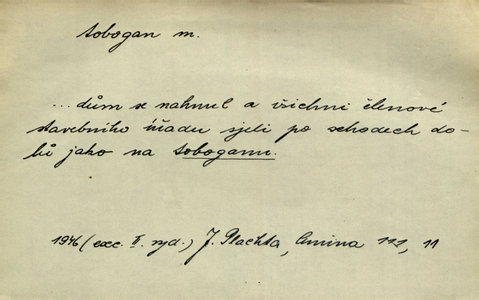 tobogan m.
...dům se nahnul a všichni členové
stavebního úřadu sjeli po schodech do-
lů jako na toboganu.
1946 (exc. II. vyd.) J. Plachta, Amina 111, 11